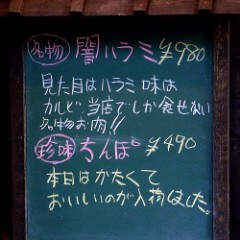 名物 闇ハラミ ¥980
見た目はハラミ 味は
カルビ!当店でしか食せない
名物お肉!!
珍味 ちんぽ ¥490
本日はかたくて
おいしいのが入荷しました。